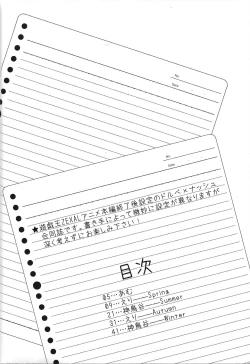 No.
Date
No.
Date
★遊戯王ZEXALアニメ本編終了後設定のドルベ×ナッシュ
合同誌です。書き手によって微妙に設定が異なりますが
深く考えずにお楽しみ下さい!
目次
05…あむ
09…えり——Spring
21…神鳥谷——Summer
31…えり——Autumn
41…神鳥谷——Winter